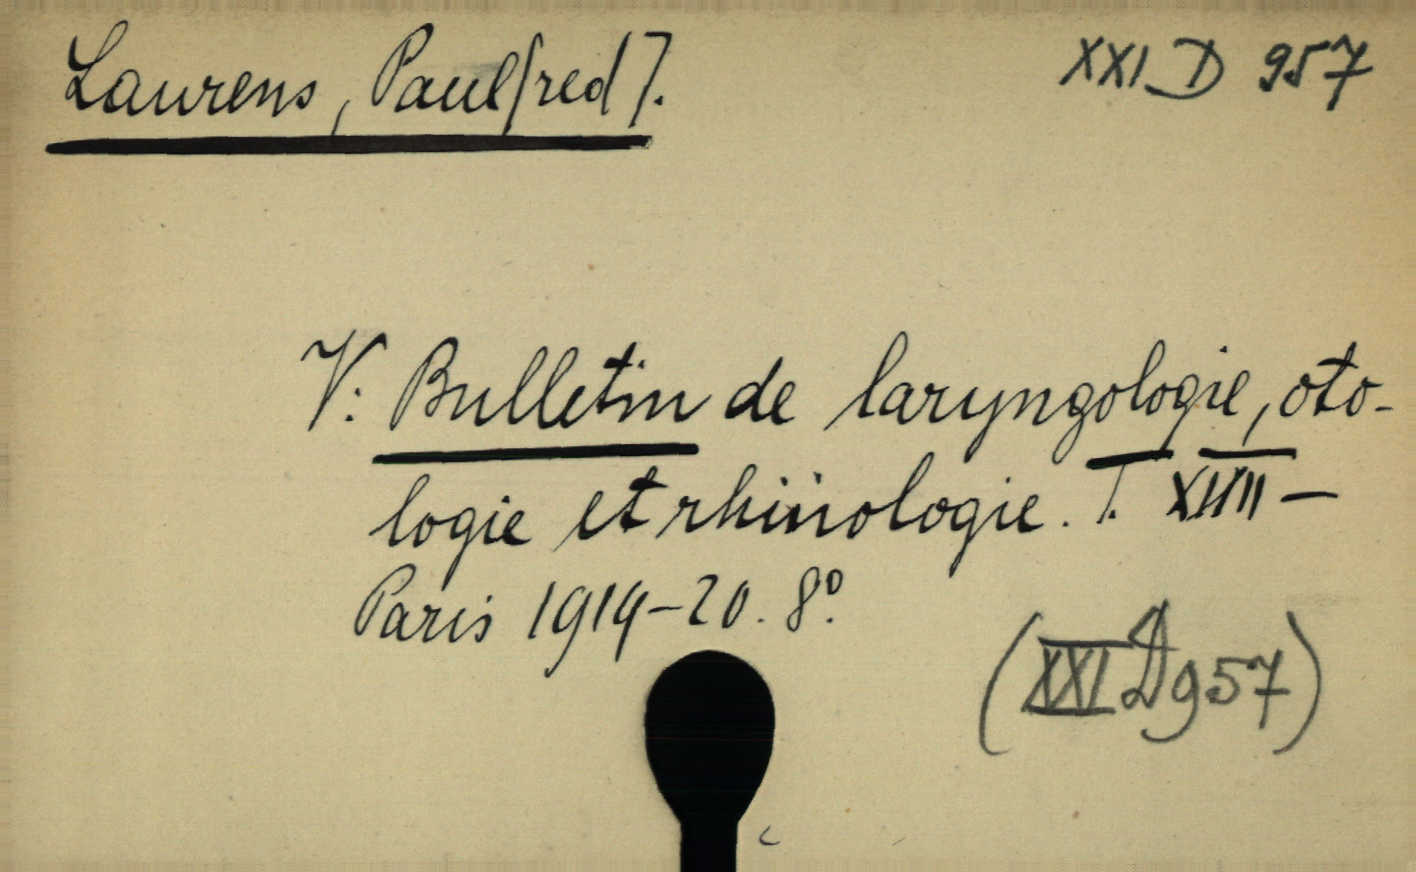 Laurens, Paul[red].
XXI D 957
V: Bulletin de laryngologie, oto-
logie et rhinologie. T. XVIII —
Paris 1919-20. 8º.
(XXI D 957)